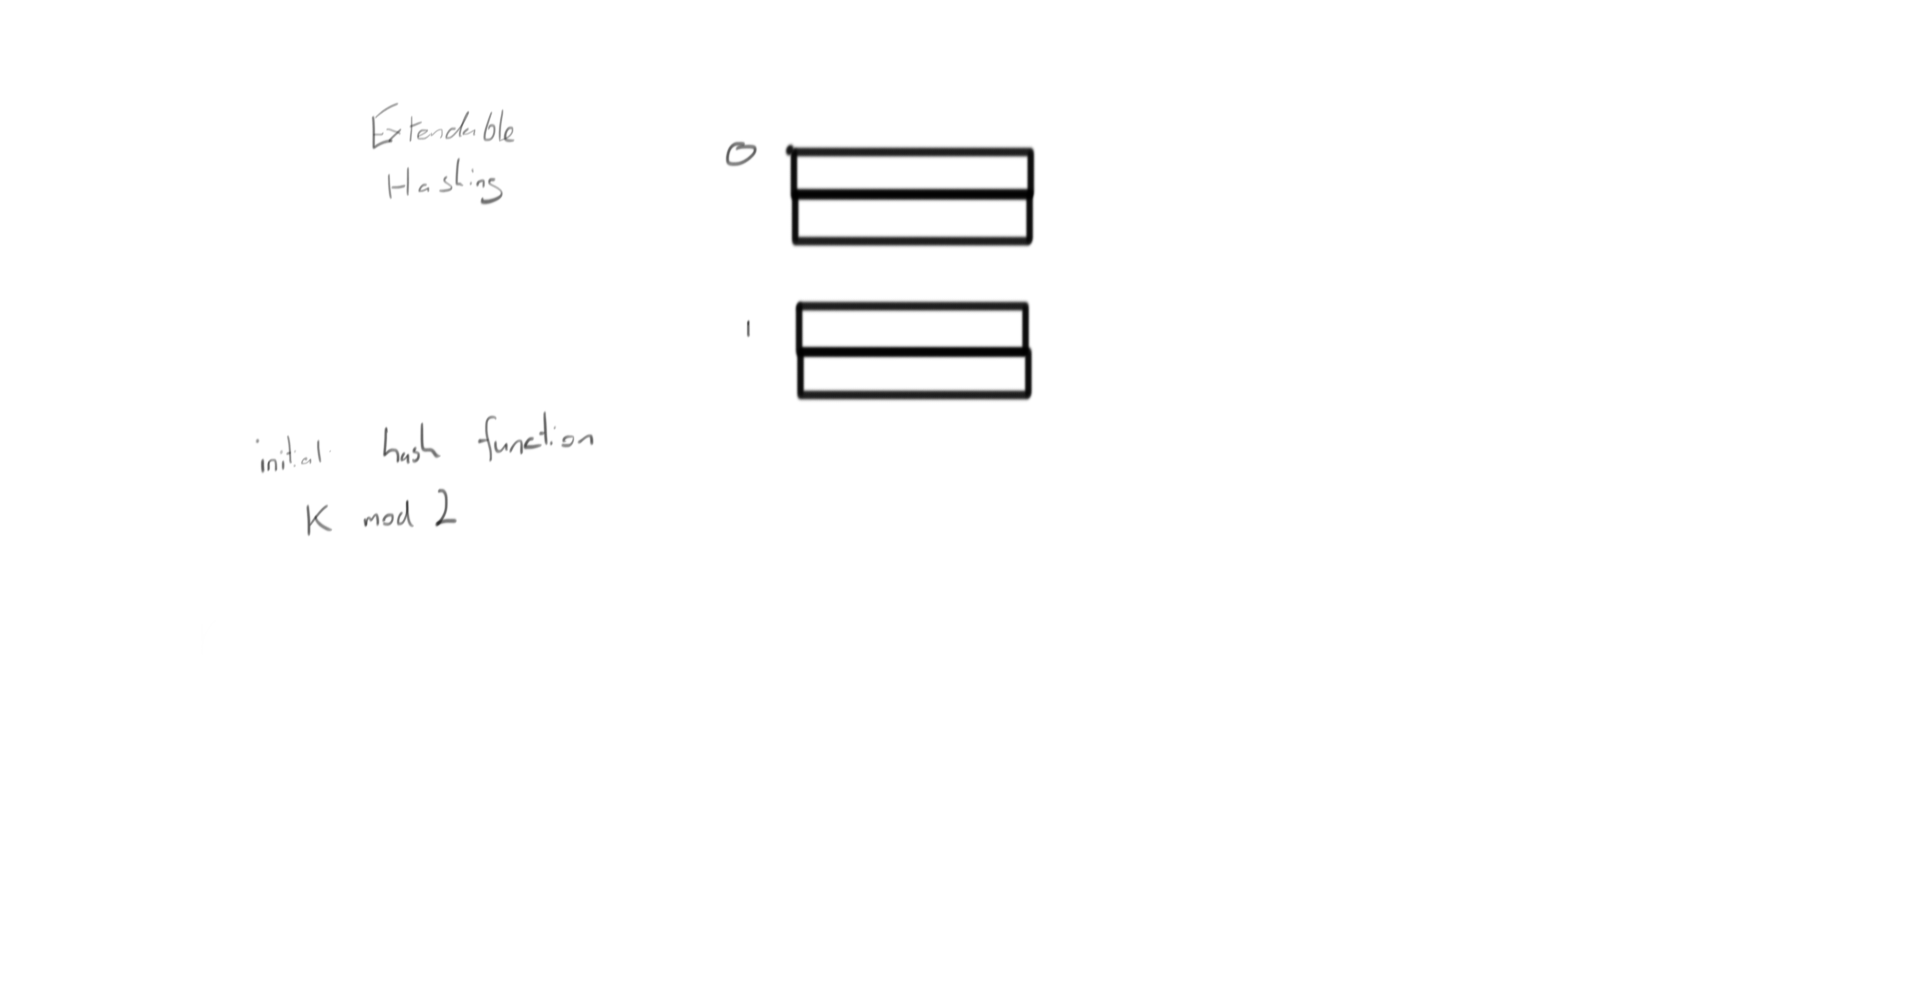 Extendable
Hashing
0
1
initial hash function
K mod 2